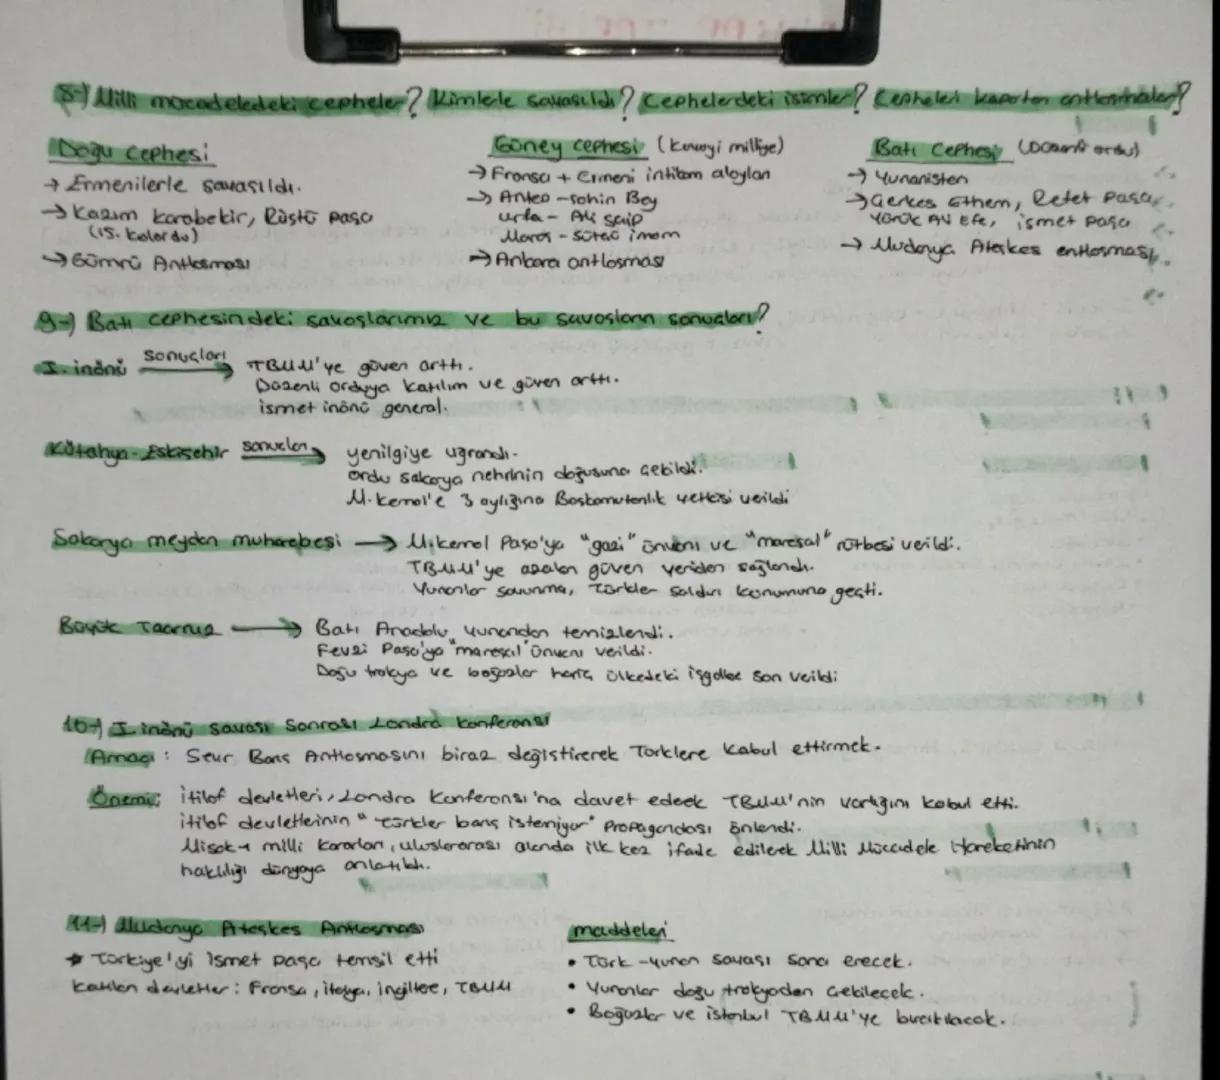 8-) Milli mücadeledeki cepheler? Kimlerle savaşıldı? Cephelerdeki isimler? Cepheleri kapatan antlaşmalar?
Doğu cephesi
→ Ermenilerle savaşıldı.
→ Kazım karabekir, Rüştü paşa
(15. kolordu)
→ Gümrü Antlaşması
Güney cephesi (kuvayi milliye)
→ Fransa + Ermeni intikam alayları
→ Antep - şahin Bey
urfa - Ali saip
Maraş - sütçü imam
→ Ankara antlaşması
Batı Cephesi (Düzenli ordu)
→ Yunanistan
→ Çerkes Ethem, Refet Paşa,
Yörük Ali Efe, ismet paşa
→ Mudanya Ateşkes antlaşması
9-) Batı cephesindeki savaşlarımız ve bu savaşların sonuçları?
I. inönü sonuçları → TBMM'ye güven arttı.
Düzenli orduya katılım ve güven arttı.
ismet inönü general.
Kütahya-Eskişehir sonuçları → yenilgiye uğrandı.
ordu sakarya nehrinin doğusuna çekildi.
M. kemal'e 3 aylığına Başkomutanlık yetkisi verildi
Sakarya meydan muharebesi → M. kemal Paşa'ya "gazi" ünvanı ve "mareşal" rütbesi verildi.
TBMM'ye azalan güven yeniden sağlandı.
Yunanlar savunma, Türkler saldırı konumuna geçti.
Büyük Taarruz → Batı Anadolu yunandan temizlendi.
Fevzi Paşa'ya "mareşal" ünvanı verildi.
Doğu trakya ve boğazlar hariç ülkedeki işgallere son verildi
10-) I. inönü savaşı sonrası Londra konferansı
Amacı: Sevr Barış Antlaşmasını biraz değiştirerek Türklere kabul ettirmek.
Önemi: itilaf devletleri, Londra Konferansı'na davet ederek TBMM'nin varlığını kabul etti.
itilaf devletlerinin "Türkler barış istemiyor" propagandası önlendi.
Misak-ı milli kararları, uluslararası alanda ilk kez ifade edilerek Milli Mücadele Hareketinin
haklılığı dünyaya anlatıldı.
11-) Mudanya Ateşkes Antlaşması
* Türkiye'yi İsmet paşa temsil etti
katılan devletler: Fransa, italya, ingiltere, TBMM
maddeleri
• Türk-yunan savaşı sona erecek.
• Yunanlar doğu trakyadan çekilecek.
• Boğazlar ve istanbul TBMM'ye bırakılacak.